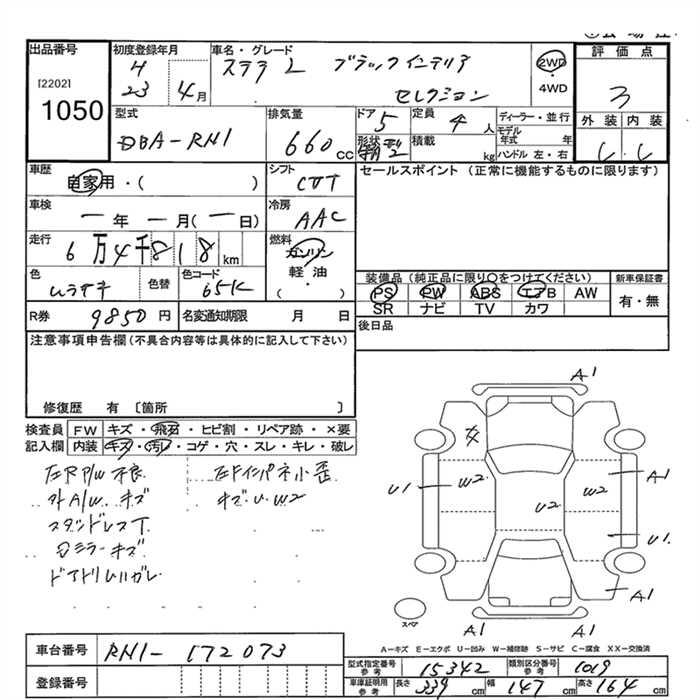 出品番号
[2202]
1050
初度登録年月
H
23年4月
車名・グレード
ステラ L ブラックインテリア
セレクション
2WD
・
4WD
評価点
3
外装 内装
C C
型式
DBA-RN1
排気量
660 CC
ドア
5
形状
定員
4人
積載
kg
ディーラー・並行
モデル
年式 年
ハンドル 左・右
車歴
自家用・( )
シフト
CVT
セールスポイント (正常に機能するものに限ります)
車検
ー年ー月(ー日)
冷房
AAC
走行
6万4千818km
燃料
ガソリン
軽油
・( )
色
ムラサキ
色替
色コード
65K
装備品 (純正品に限り○をつけてください)
PS PW ABS エアB AW
SR ナビ TV カワ
新車保証書
有・無
R券
9850円
名変通知期限 月 日
後日品
注意事項申告欄 (不具合内容等は具体的に記入して下さい)
修復歴 有 〔箇所 〕
検査員
記入欄
FW キズ・飛石・ヒビ割・リペア跡・×要
内装 キズ・汚レ・コゲ・穴・スレ・キレ・破レ
左R P/W不良
外A/W キズ
スタッドレスT
Dミラーキズ
ドアトリムハガレ
左Fインパネ小歪
キズ U W2
A1
U1
W2
U2
W2
A1
U1
A1
A1 A1
スペア
A-キズ E-エクボ U-凹み W-補修跡 S-サビ C-腐食 XX-交換済
車台番号
RN1-172073
登録番号
型式指定番号
参考
15342
類別区分番号
参考
1019
車庫証明用
参考
長さ 339cm 幅 147cm 高さ 164cm